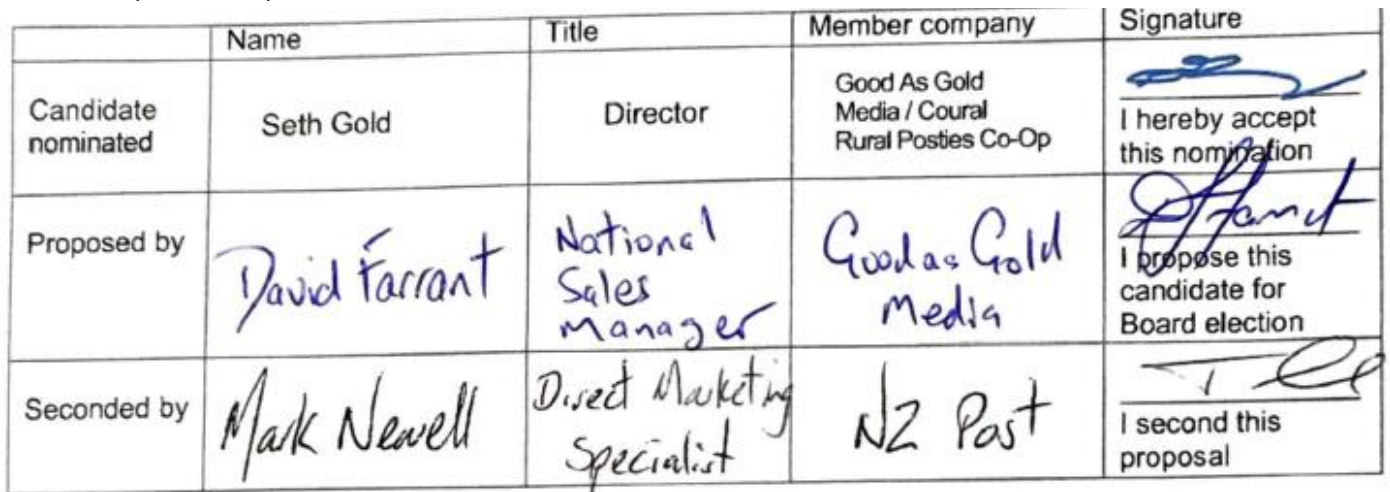 Name Title Member company Signature
Candidate nominated Seth Gold Director Good As Gold Media / Coural Rural Posties Co-Op
I hereby accept
this nomination
Proposed by David Farrant National Sales Manager Good as Gold Media
I propose this
candidate for
Board election
Seconded by Mark Newell Direct Marketing Specialist NZ Post
I second this
proposal